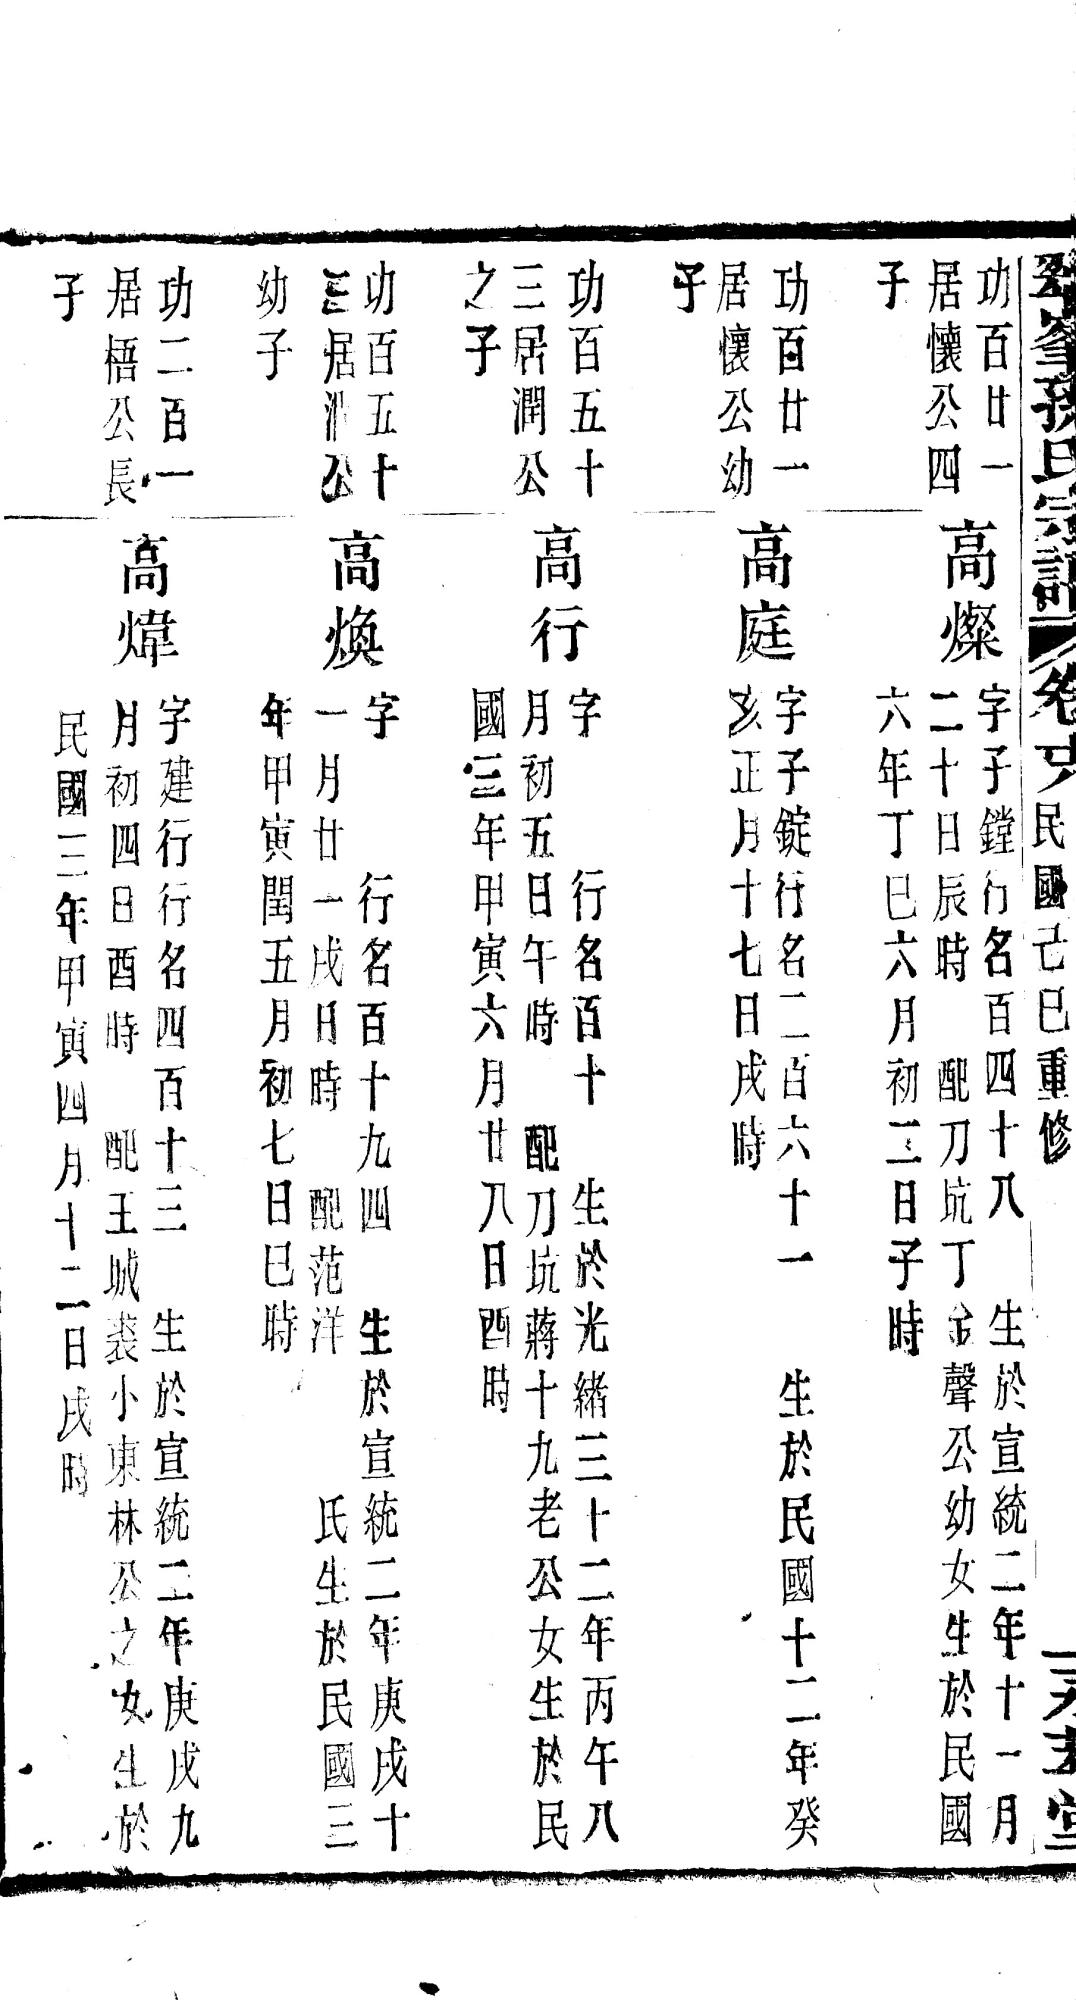 峯孫氏宗譜 卷 民國己巳重修
功百廿一
居懷公四
子
高燦
字子鏜行名百四十八 生於宣統二年十一月
二十日辰時 配刀坑丁金聲公幼女生於民國
六年丁巳六月初二日子時
功百廿一
居懷公幼
子
高庭
字子錠行名二百六十一 生於民國十二年癸
亥正月十七日戌時
功百五十
三居潤公
之子
高行
字 行名百十 生於光緒三十二年丙午八
月初五日午時 配刀坑蔣十九老公女生於民
國三年甲寅六月廿八日酉時
功百五十
三居公
幼子
高煥
字 行名百十九四 生於宣統二年庚戌十
一月廿一戌日時 配范洋 氏生於民國三
年甲寅閏五月初七日巳時
功二百一
居梧公長
子
高煒
字建行行名四百十三 生於宣統二年庚戌九
月初四日酉時 配王城裘小東林公之女生於
民國三年甲寅四月十二日戌時